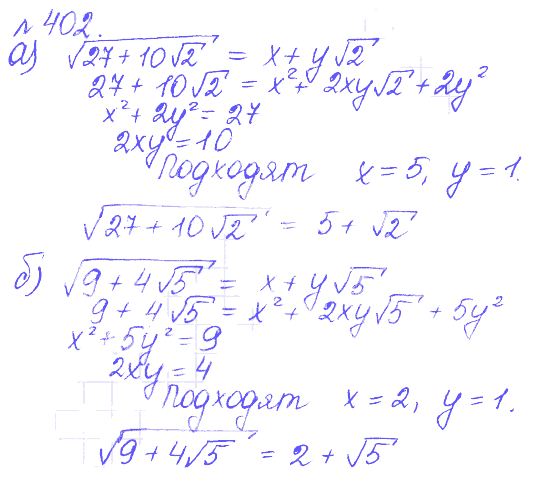 № 402.
а) √(27 + 10√2) = x + y√2
27 + 10√2 = x² + 2xy√2 + 2y²
x² + 2y² = 27
2xy = 10
Подходят x = 5, y = 1.
√(27 + 10√2) = 5 + √2
б) √(9 + 4√5) = x + y√5
9 + 4√5 = x² + 2xy√5 + 5y²
x² + 5y² = 9
2xy = 4
Подходят x = 2, y = 1.
√(9 + 4√5) = 2 + √5